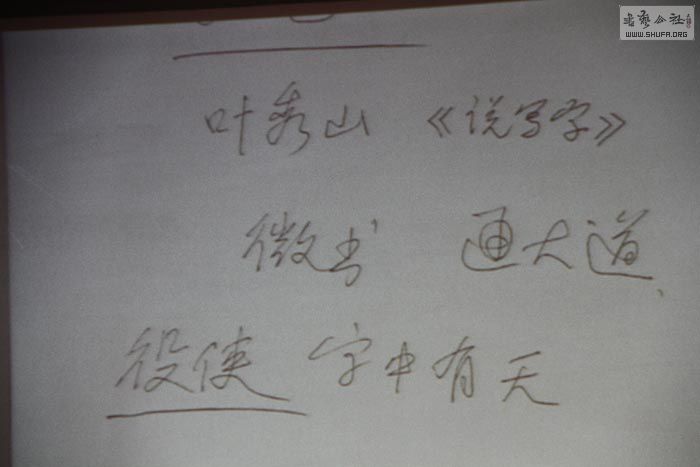 书艺公社
WWW.SHUFA.ORG
叶秀山 《说写字》
微书 通大道
役使 字中有天